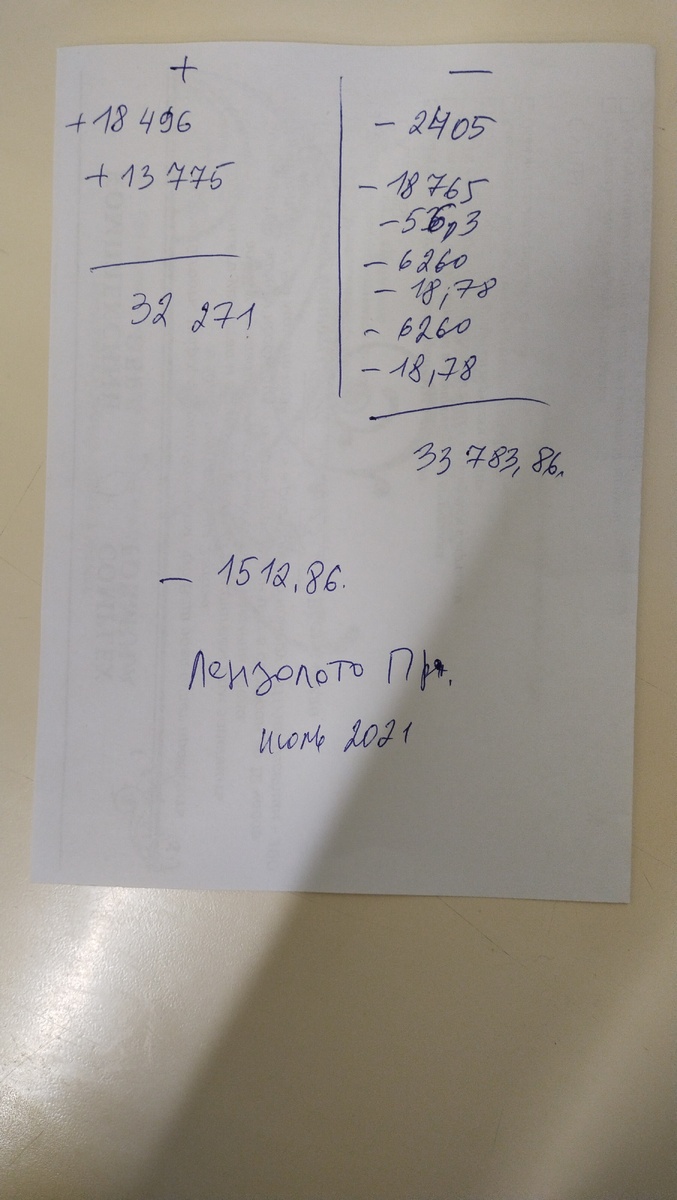 +
+18 496
+ 13 775
32 271
—
- 2405
- 18765
- 56,3
- 6260
- 18,78
- 6260
- 18,78
33 783,86.
- 1512,86.
Лензолото
июль 2021